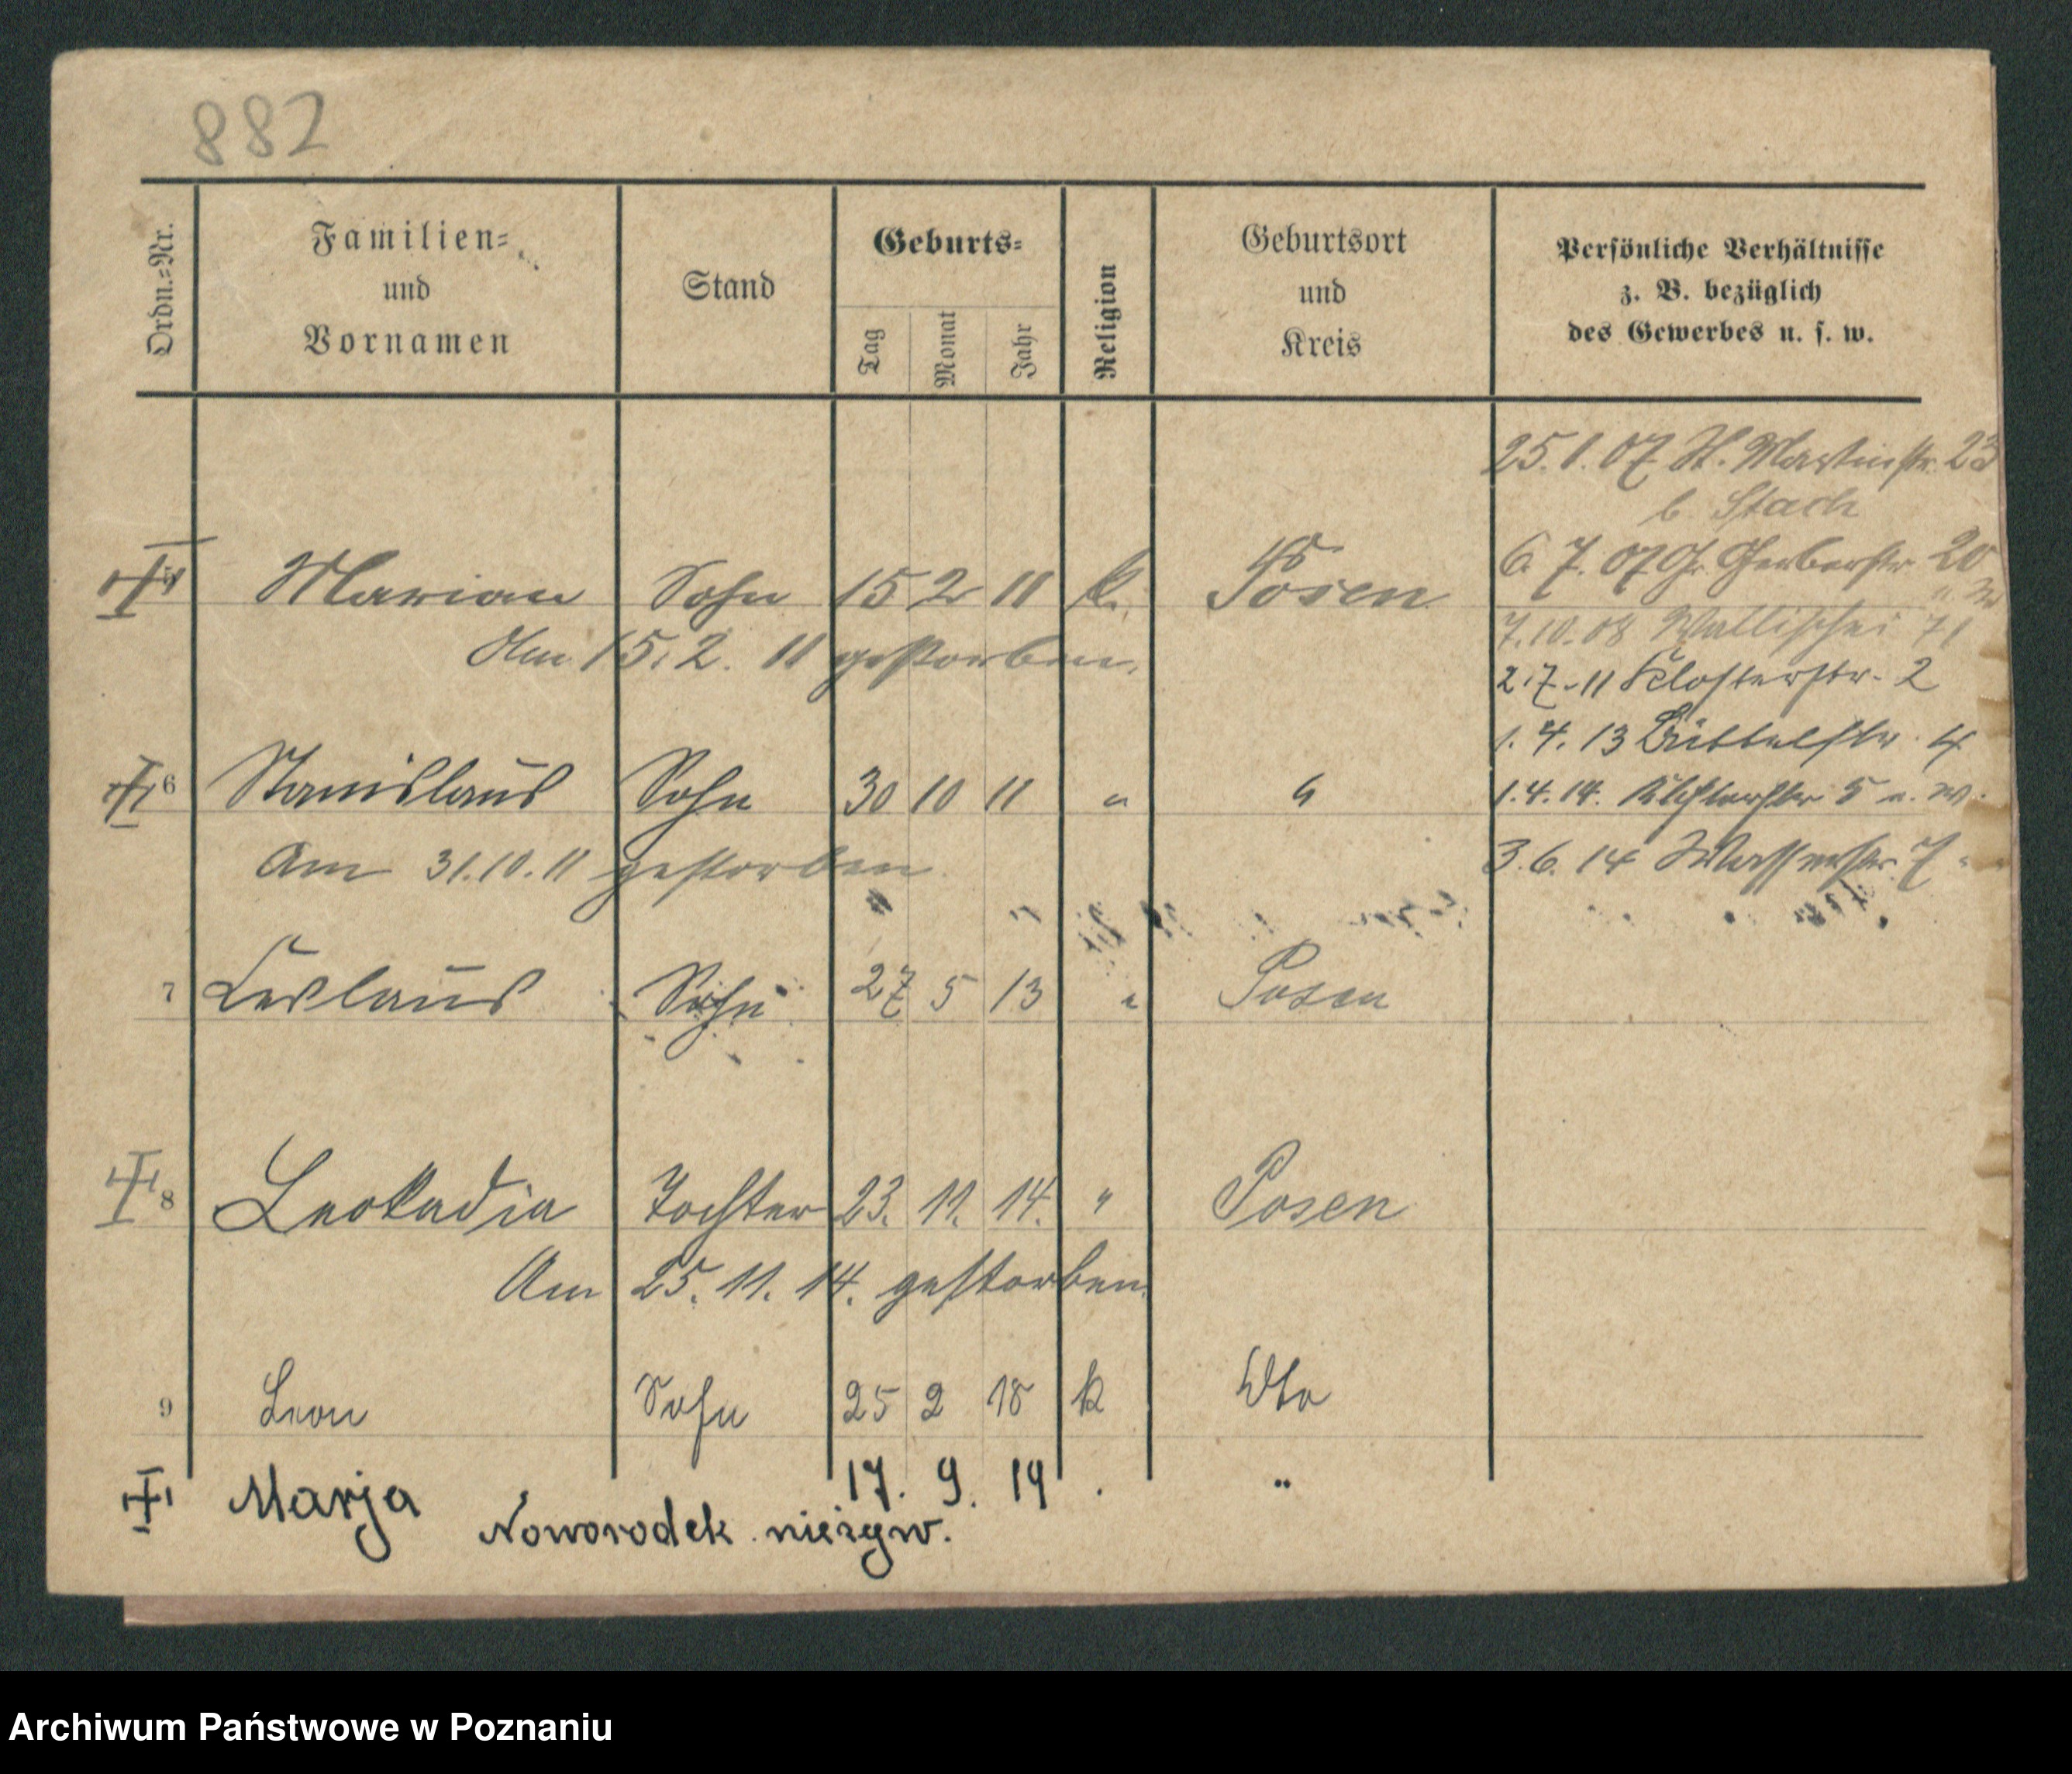 882
Ordn.-Nr.
Familien-
und
Vornamen
Stand
Geburts-
Tag
Monat
Jahr
Religion
Geburtsort
und
Kreis
Persönliche Verhältnisse
z. B. bezüglich
des Gewerbes u. s. w.
25. 1. 07 St. Martinstr. 23
b. Stach
6. 7. 07 Gr. Gerberstr. 20
7.10.08 Wallischei 71
2.7.11 Klosterstr. 2
1. 4. 13 Büttelstr. 4
1.4.14. Klosterstr 5 u. w.
3.6.14 Wasserstr. 7
5 Marian Sohn 15 2 11 k. Posen
Am 15.2. 11 gestorben.
6 Stanislaus Sohn 30 10 11 " "
Am 31.10.11 gestorben
7 Ceslaus Sohn 27 5 13 " Posen
8 Leokadia Tochter 23. 11. 14. " Posen
Am 25. 11. 14. gestorben.
9 Leon Sohn 25 2 18 k dto
Marja 17. 9. 19 "
Noworodek nieżyw.
Archiwum Państwowe w Poznaniu